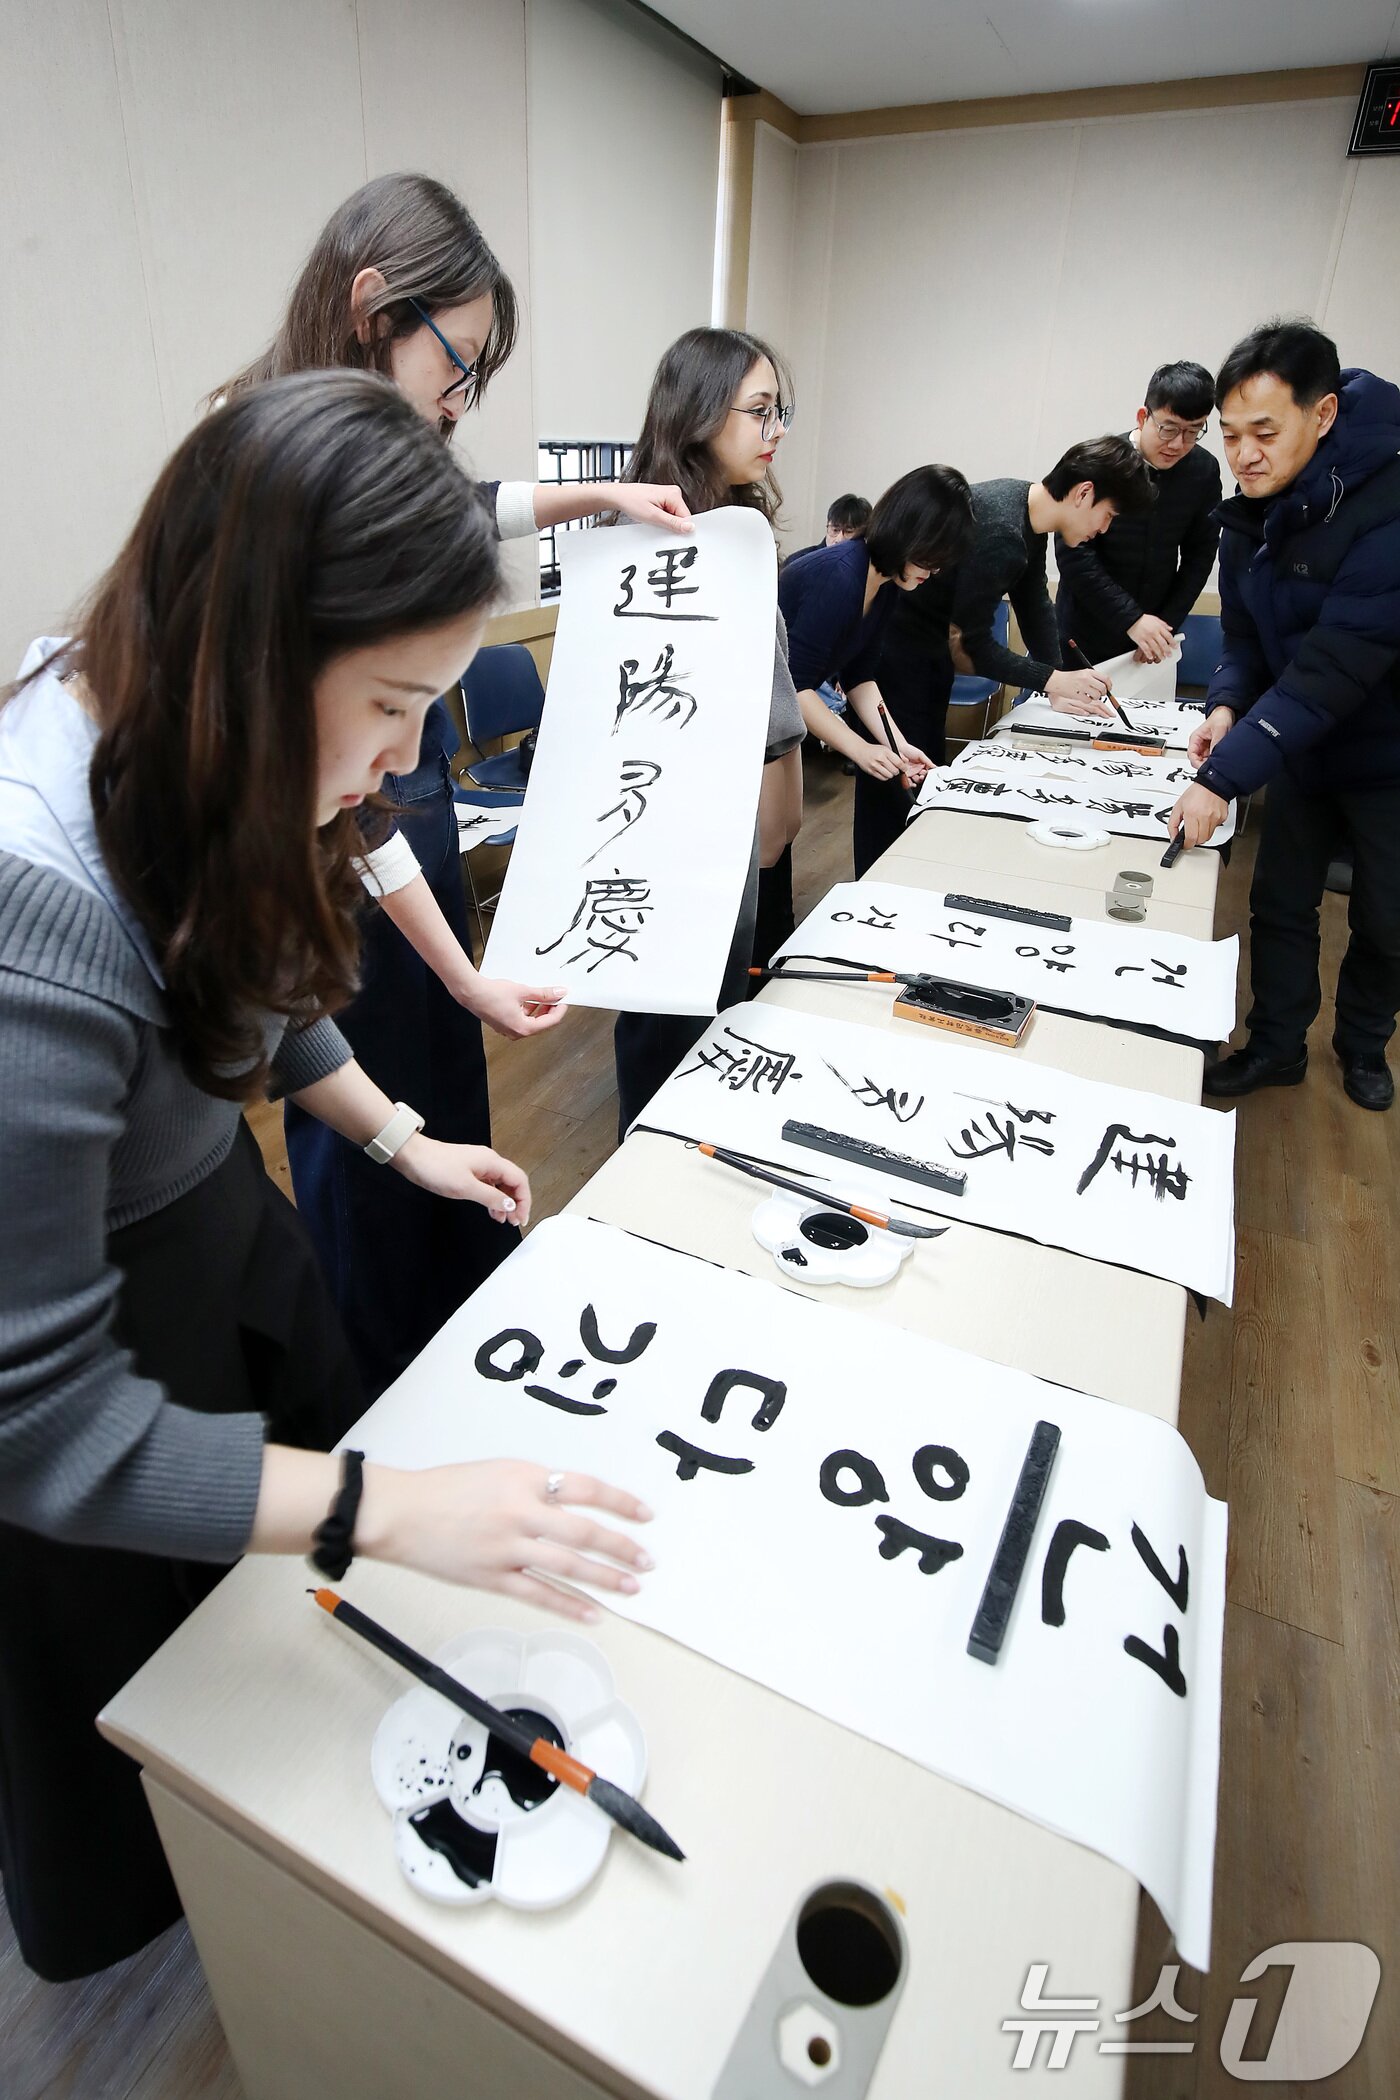 建陽多慶
건양다경
建陽多慶
건양다경
建陽多慶
K2
뉴스1